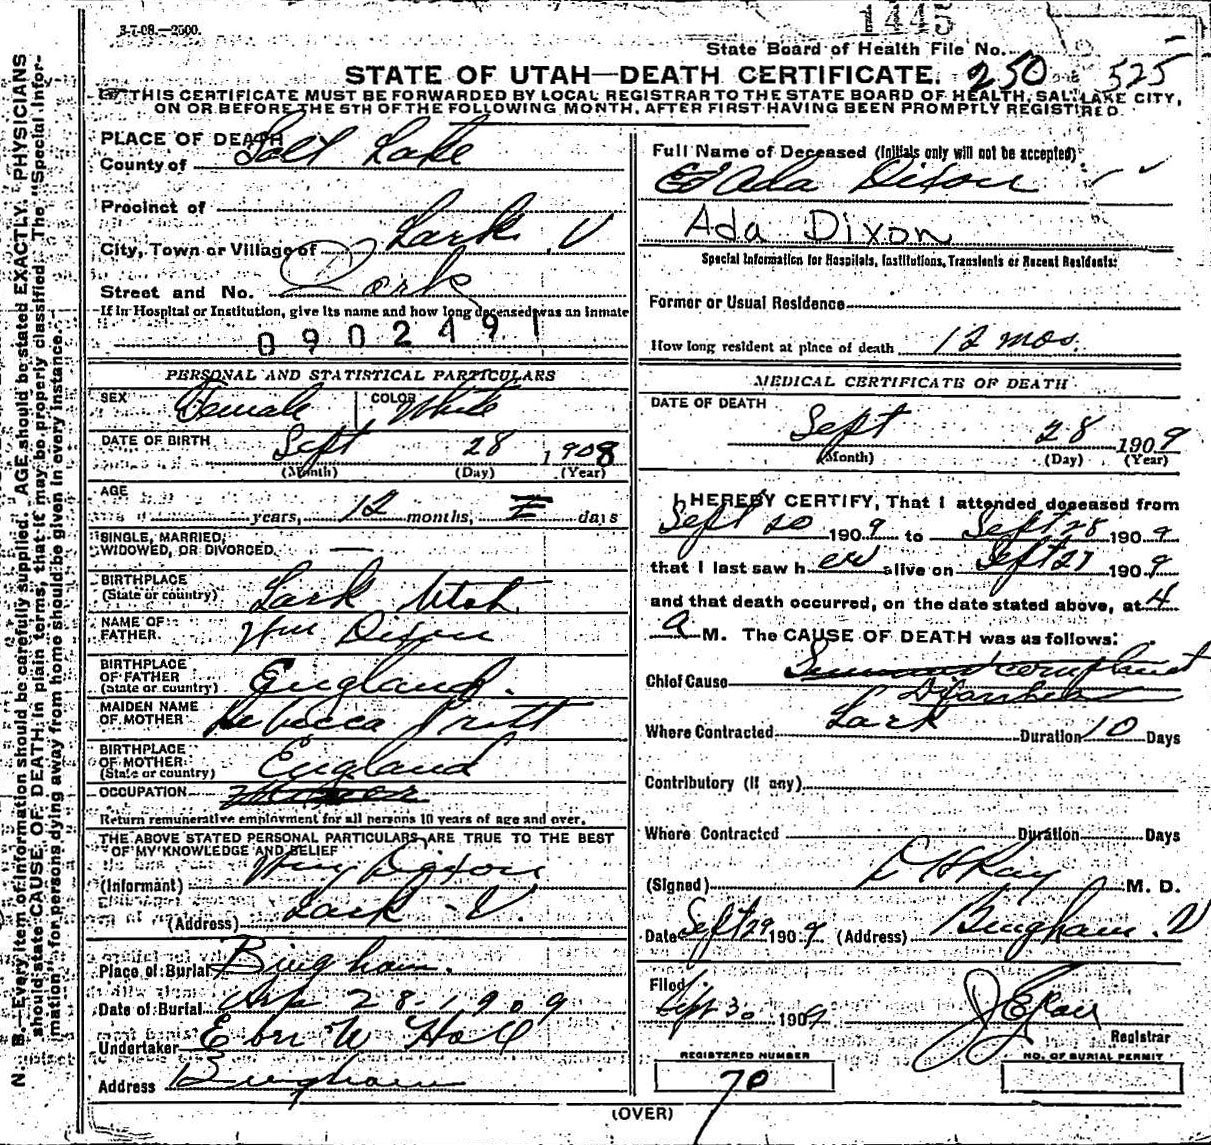 3-7-08.—2500.
1445
State Board of Health File No.
250 525
STATE OF UTAH—DEATH CERTIFICATE.
THIS CERTIFICATE MUST BE FORWARDED BY LOCAL REGISTRAR TO THE STATE BOARD OF HEALTH, SALT LAKE CITY,
ON OR BEFORE THE 5TH OF THE FOLLOWING MONTH, AFTER FIRST HAVING BEEN PROMPTLY REGISTIRED.
N. B.—Every item of information should be carefully supplied. AGE should be stated EXACTLY. PHYSICIANS
should state CAUSE OF DEATH in plain terms, that it may be properly classified. The "Special Infor-
mation" for persons dying away from home should be given in every instance.
PLACE OF DEATH
County of Salt Lake
Precinct of
City, Town or Village of Lark U
Street and No. Lark
If in Hospital or Institution, give its name and how long deceased was an inmate
0902491
PERSONAL AND STATISTICAL PARTICULARS
SEX Female COLOR White
DATE OF BIRTH Sept 28 1908
(Month) (Day) (Year)
AGE
years, 12 months, days
SINGLE, MARRIED,
WIDOWED, OR DIVORCED. —
BIRTHPLACE
(State or country) Lark Utah
NAME OF
FATHER. Wm Dixon
BIRTHPLACE
OF FATHER
(State or country) England.
MAIDEN NAME
OF MOTHER Rebecca Pratt
BIRTHPLACE
OF MOTHER
(State or country) England
OCCUPATION
Return remunerative employment for all persons 10 years of age and over.
THE ABOVE STATED PERSONAL PARTICULARS ARE TRUE TO THE BEST
OF MY KNOWLEDGE AND BELIEF
(Informant) Wm Dixon
(Address) Lark - U.
Place of Burial Bingham.
Date of Burial 28-1909
Undertaker W Hall
Address Bingham
Full Name of Deceased (Initials only will not be accepted)
Ada Dixon
Ada Dixon
Special Information for Hospitals, Institutions, Transients or Recent Residents:
Former or Usual Residence
How long resident at place of death 12 mos.
MEDICAL CERTIFICATE OF DEATH
DATE OF DEATH
Sept 28 1909
(Month) (Day) (Year)
I HEREBY CERTIFY, That I attended deceased from
Sept 20 1909 to Sept 28 1909
that I last saw her alive on Sept 27 1909
and that death occurred, on the date stated above, at 4
a M. The CAUSE OF DEATH was as follows:
Summer complaint
Chief Cause Diarrhea
Where Contracted Lark Duration 10 Days
Contributory (if any)
Where Contracted Duration Days
(Signed) Ray M. D.
Date Sept 29 1909 (Address) Bingham. U
Filed
Sept 30 1909
Registrar
REGISTERED NUMBER
70
NO. OF BURIAL PERMIT
(OVER)